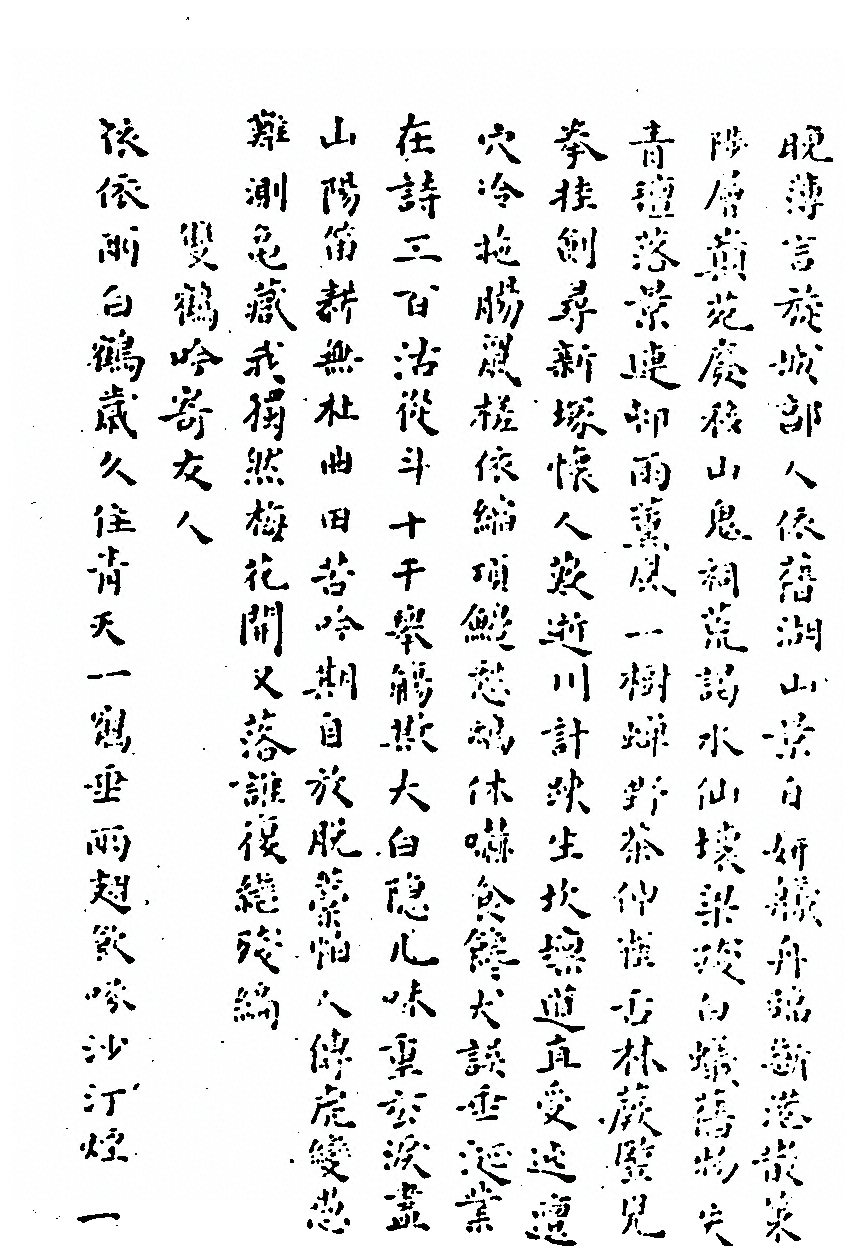 晚薄言旋城部人依舊湖山景自妍艤舟臨斷港散策
陟層巔苑廢移山鬼祠荒謁水仙壞梁殘白蟻舊物失
青氊落景連邨雨薰風一樹蟬野茶仲雀舌林蕨豎兒
拳挂劍尋新塚懷人哀逝川計疎生坎壈道直受迍邅
穴冷拖腸鼠槎依縮項鯿愁鴟休嚇食饞犬誤垂涎業
在詩三百沽從斗十千舉觴欺大白隱几味重玄淚盡
山陽笛耕無杜曲田苦吟期自放脫藁怕人傳虎變悲
難測龜藏我獨然梅花開又落誰復繼殘編
雙鶴吟寄友人
依依兩白鶴歲久住青天一鶴垂兩翅飲啄沙汀煙一